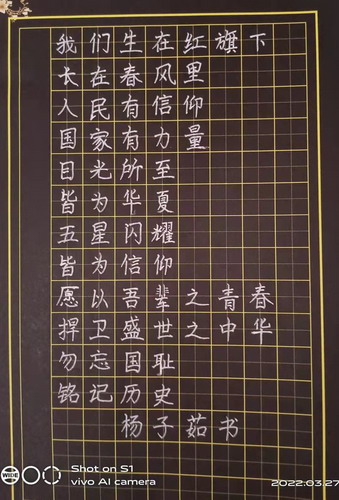 我们生在红旗下
长在春风里
人民有信仰
国家有力量
目光所至
皆为华夏
五星闪耀
皆为信仰
愿以吾辈之青春
捍卫盛世之中华
勿忘国耻
铭记历史
杨子茹书
WIDE
Shot on S1
vivo AI camera
2022.03.27